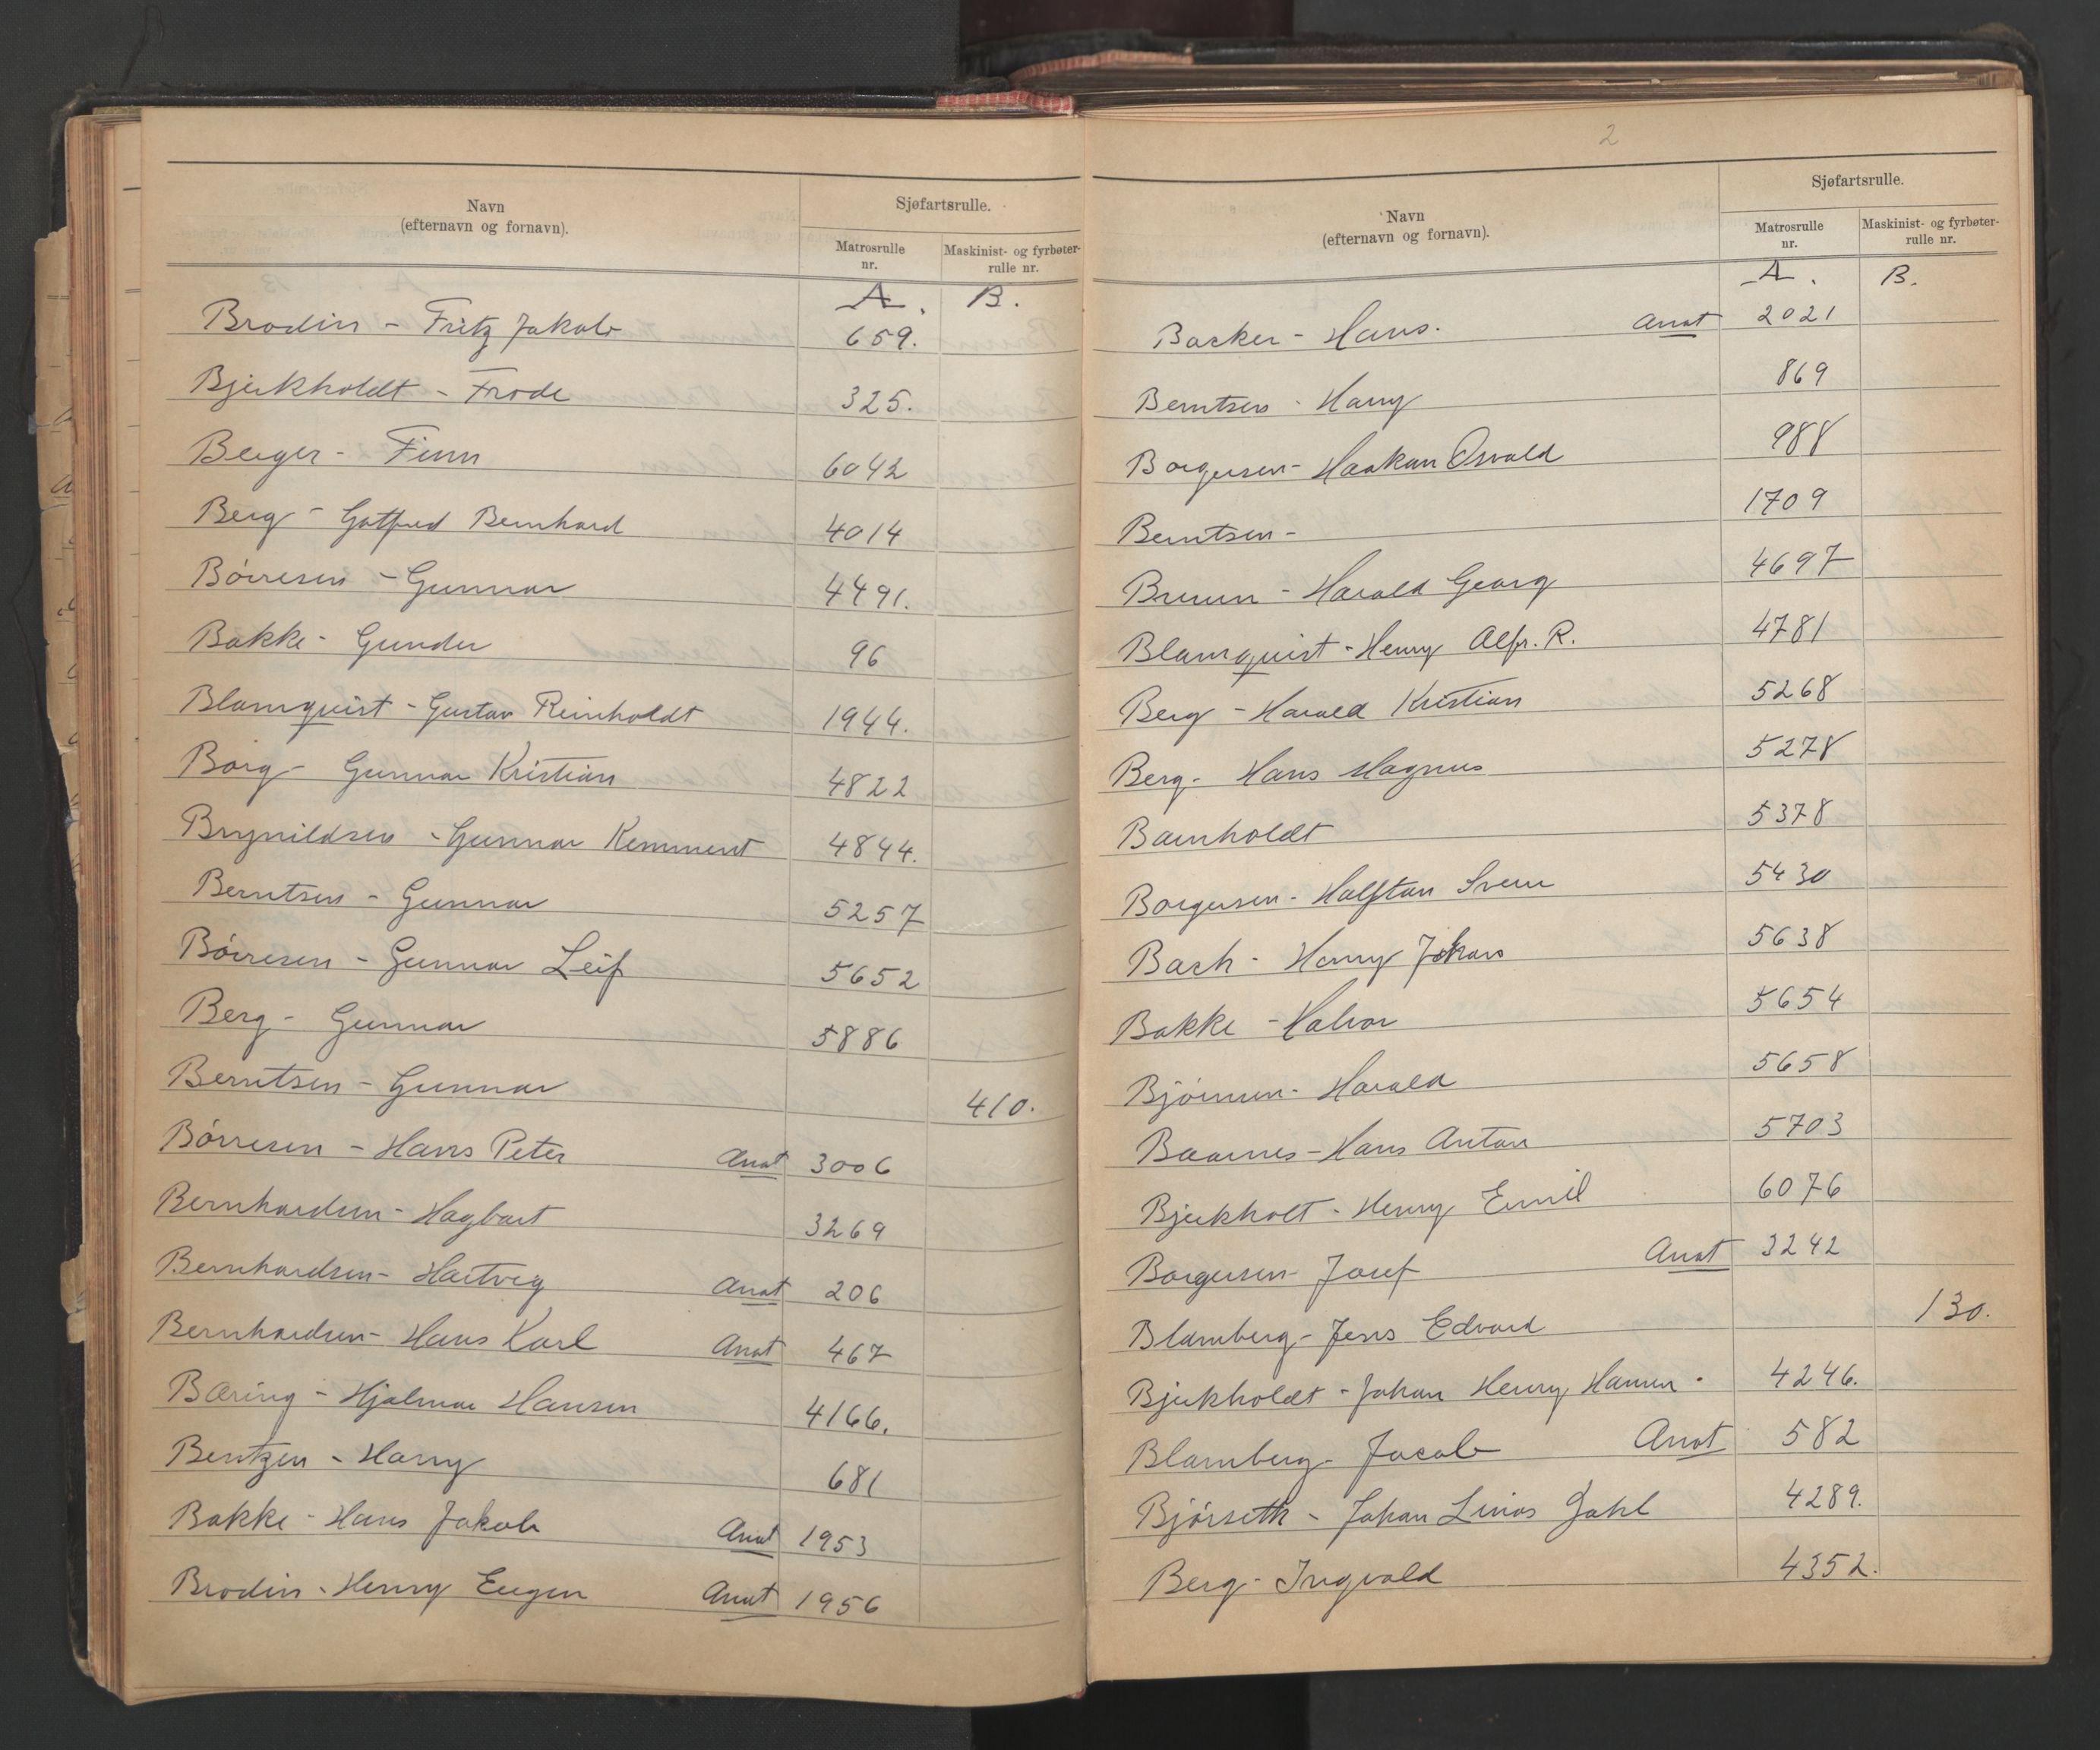 Navn
(efternavn og fornavn).
Sjøfartsrulle.
Matrosrulle
nr.
Maskinist- og fyrbøter-
rulle nr.
A. B.
Brodin - Fritz Jakob 659.
Bjerkholdt - Frode 325.
Berger - Finn 6042
Berg - Gotfred Bernhard 4014
Børresen - Gunnar 4491.
Bakke - Gunder 96
Blomquist - Gustav Reinholdt 1944.
Borg - Gunnar Kristian 4822
Brynildsen - Gunnar Kemment 4844.
Berntsen - Gunnar 5257
Børresen - Gunnar Leif 5652
Berg - Gunnar 5886
Berntsen - Gunnar 410.
Børresen - Hans Peter Anot 3006
Bernhardsen - Hagbart 3269
Bernhardsen - Hartvig Anot 206
Bernhardsen - Hans Karl Anot 467
Bæring - Hjalmar Hansen 4166.
Bentzen - Harry 681
Bakke - Hans Jakob Anot 1953
Brodin - Henry Eugen Anot 1956
2
Navn
(efternavn og fornavn).
Sjøfartsrulle.
Matrosrulle
nr.
Maskinist- og fyrbøter-
rulle nr.
A. B.
Backer - Hans. Anot 2021
Berntsen - Harry 869
Borgersen - Haakon Osvald 988
Berntsen - 1709
Bruun - Harald Georg 4697
Blomquist - Henry Alfr. R. 4781
Berg - Harald Kristian 5268
Berg - Hans Magnus 5278
Barnholdt 5378
Borgersen - Halfdan Svein 5430
Bach - Henry Johan 5638
Bakke - Halvor 5654
Bjørnsen - Harald 5658
Baarnes - Hans Anton 5703
Bjerkholt - Henry Emil 6076
Borgersen - Josef Anot 3242
Blomberg - Jens Edvard 130.
Bjerkholdt - Johan Henry Hansen 4246.
Blomberg - Jacob Anot 582
Bjørseth - Johan Linos Dahl 4289.
Berg - Ingvald 4352.